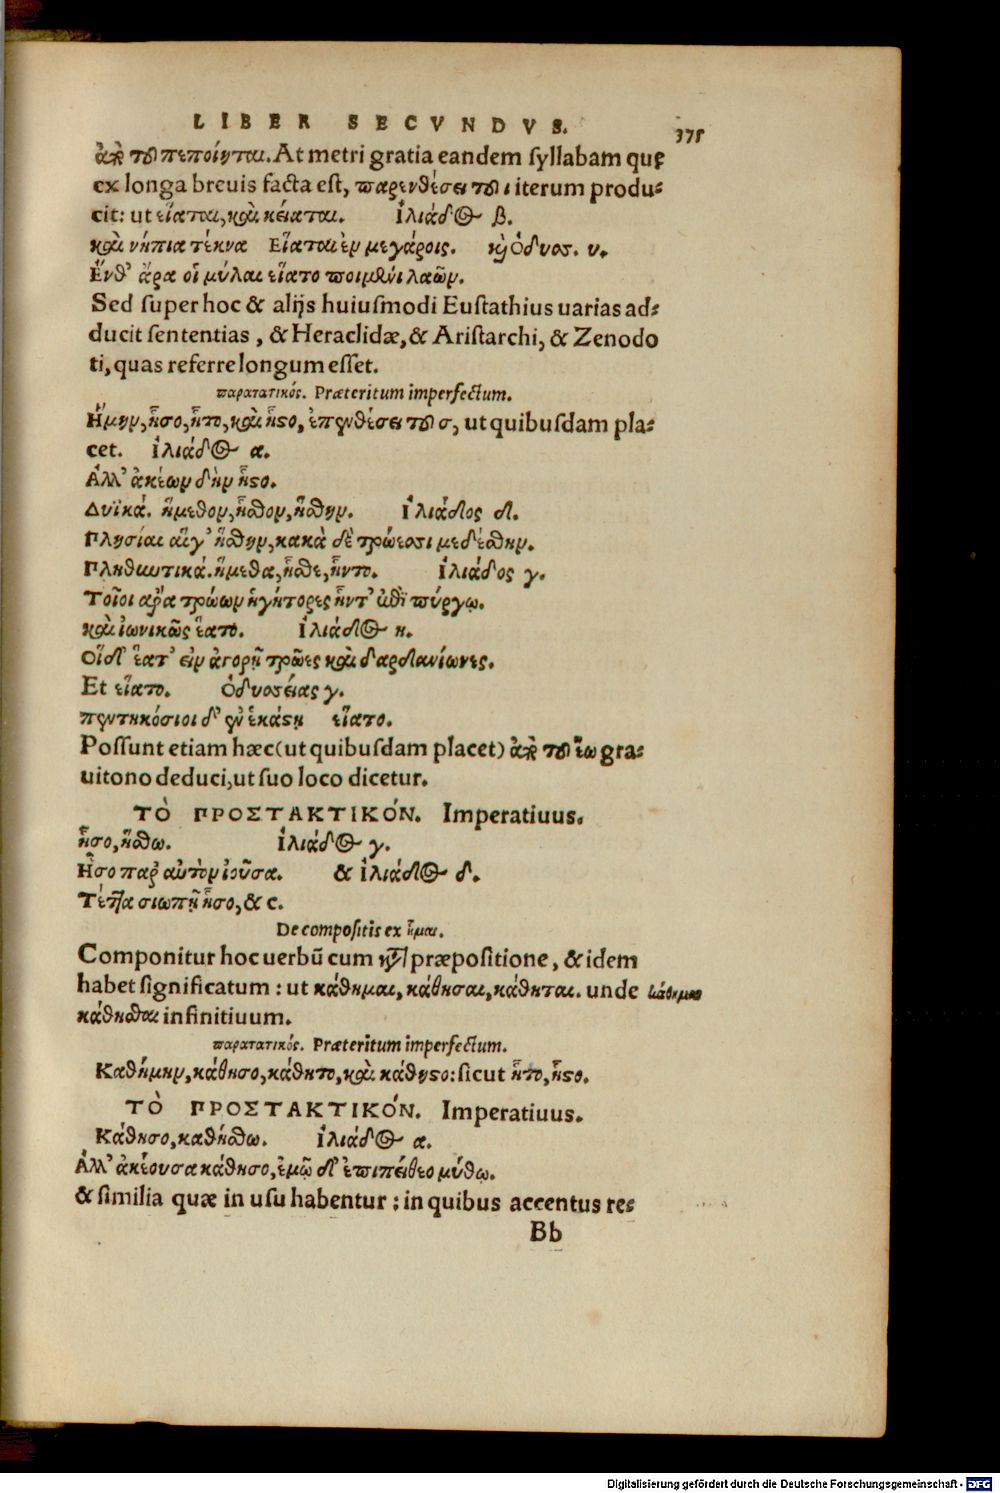 LIBER SECVNDVS. 375
ἀπὸ τοῦ πεποίηνται. At metri gratia eandem syllabam quę
ex longa breuis facta est, παρενθέσει τοῦ ι iterum produ-
cit: ut εἵαται, καὶ κείαται. Ἰλιάδος β.
καὶ νήπια τέκνα Εἵαται ἐν μεγάροις. καὶ Ὀδυσσ. υ.
Ἔνθ' ἄρα οἱ μύλαι εἵατο ποιμένι λαῶν.
Sed super hoc & alijs huiusmodi Eustathius uarias ad-
ducit sententias, & Heraclidæ, & Aristarchi, & Zenodo
ti, quas referre longum esset.
παρατατικός. Præteritum imperfectum.
Ἥμην, ἧσο, ἧτο, καὶ ἧστο, ἐπενθέσει τοῦ σ, ut quibusdam pla-
cet. Ἰλιάδος α.
Ἀλλ' ἀκέων δὴν ἧστο.
Δυϊκά. ἥμεθον, ἧσθον, ἥσθην. Ἰλιάδος δ.
Πλησίαι αἵγ' ἥσθην, κακὰ δὲ τρώεσσι μεδέσθην.
Πληθυντικά. ἥμεθα, ἧσθε, ἧντο. Ἰλιάδος γ.
Τοῖοι ἄρα τρώων ἡγήτορες ἧντ' ἐπὶ πύργῳ.
καὶ ἰωνικῶς ἕατο. Ἰλιάδος η.
Οἱ δ' ἕατ' εἰν ἀγορῇ τρῶες καὶ δαρδανίωνες.
Et εἵατο. Ὀδυσσείας γ.
πεντηκόσιοι δ' ἐν ἑκάστῃ εἵατο.
Possunt etiam hæc (ut quibusdam placet) ἀπὸ τοῦ ἕω gra-
uitono deduci, ut suo loco dicetur.
ΤῸ ΠΡΟΣΤΑΚΤΙΚΌΝ. Imperatiuus.
ἧσο, ἥσθω. Ἰλιάδος γ.
Ἧσο παρ' αὐτὸν ἰοῦσα. & Ἰλιάδος δ.
Τέττα σιωπῇ ἧσο, & c.
De compositis ex ἧμαι.
Componitur hoc uerbū cum κατὰ præpositione, & idem
habet significatum: ut κάθημαι, κάθησαι, κάθηται. unde
καθῆσθαι infinitiuum.
παρατατικός. Præteritum imperfectum.
Καθήμην, κάθησο, κάθητο, καὶ κάθηστο: sicut ἧτο, ἧστο.
ΤῸ ΠΡΟΣΤΑΚΤΙΚΌΝ. Imperatiuus.
Κάθησο, καθήσθω. Ἰλιάδος α.
Ἀλλ' ἀκέουσα κάθησο, ἐμῷ δ' ἐπιπείθεο μύθῳ.
& similia quæ in usu habentur: in quibus accentus re-
Bb
Digitalisierung gefördert durch die Deutsche Forschungsgemeinschaft - DFG